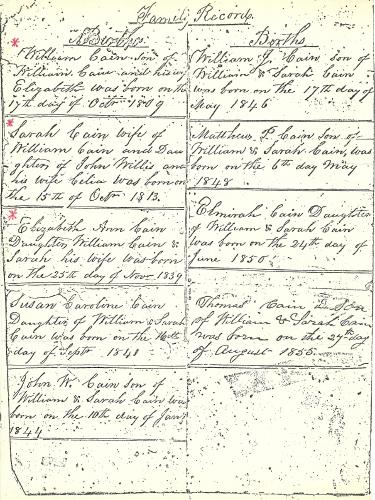 Family Record.
Births
William Cain Son of
William Cain and his wife
Elizabeth was born on the
17th day of Octr 1809
Sarah Cain wife of
William Cain and Daughter
of John Willis and
his wife Celia was born on
the 15th of Octr 1813.
Elizabeth Ann Cain
Daughter William Cain &
Sarah his wife was born
on the 25th day of Novr 1839
Susan Caroline Cain
Daughter of William & Sarah
Cain was born on the
day of Septr
John W. Cain son of
William & Sarah Cain was
born on the 10th day of Jany
1844
Births
William J. Cain son of
William & Sarah Cain
was born on the 17th day of
May 1846
Matthew P. Cain Son of
William & Sarah Cain, was
born on the 6th day May
1848
Elmirah Cain Daughter
of William & Sarah Cain
was born on the 24th day of
June 1850
Thomas Cain Son
of William & Sarah Cain
was born on the 27th day
of August 1855.